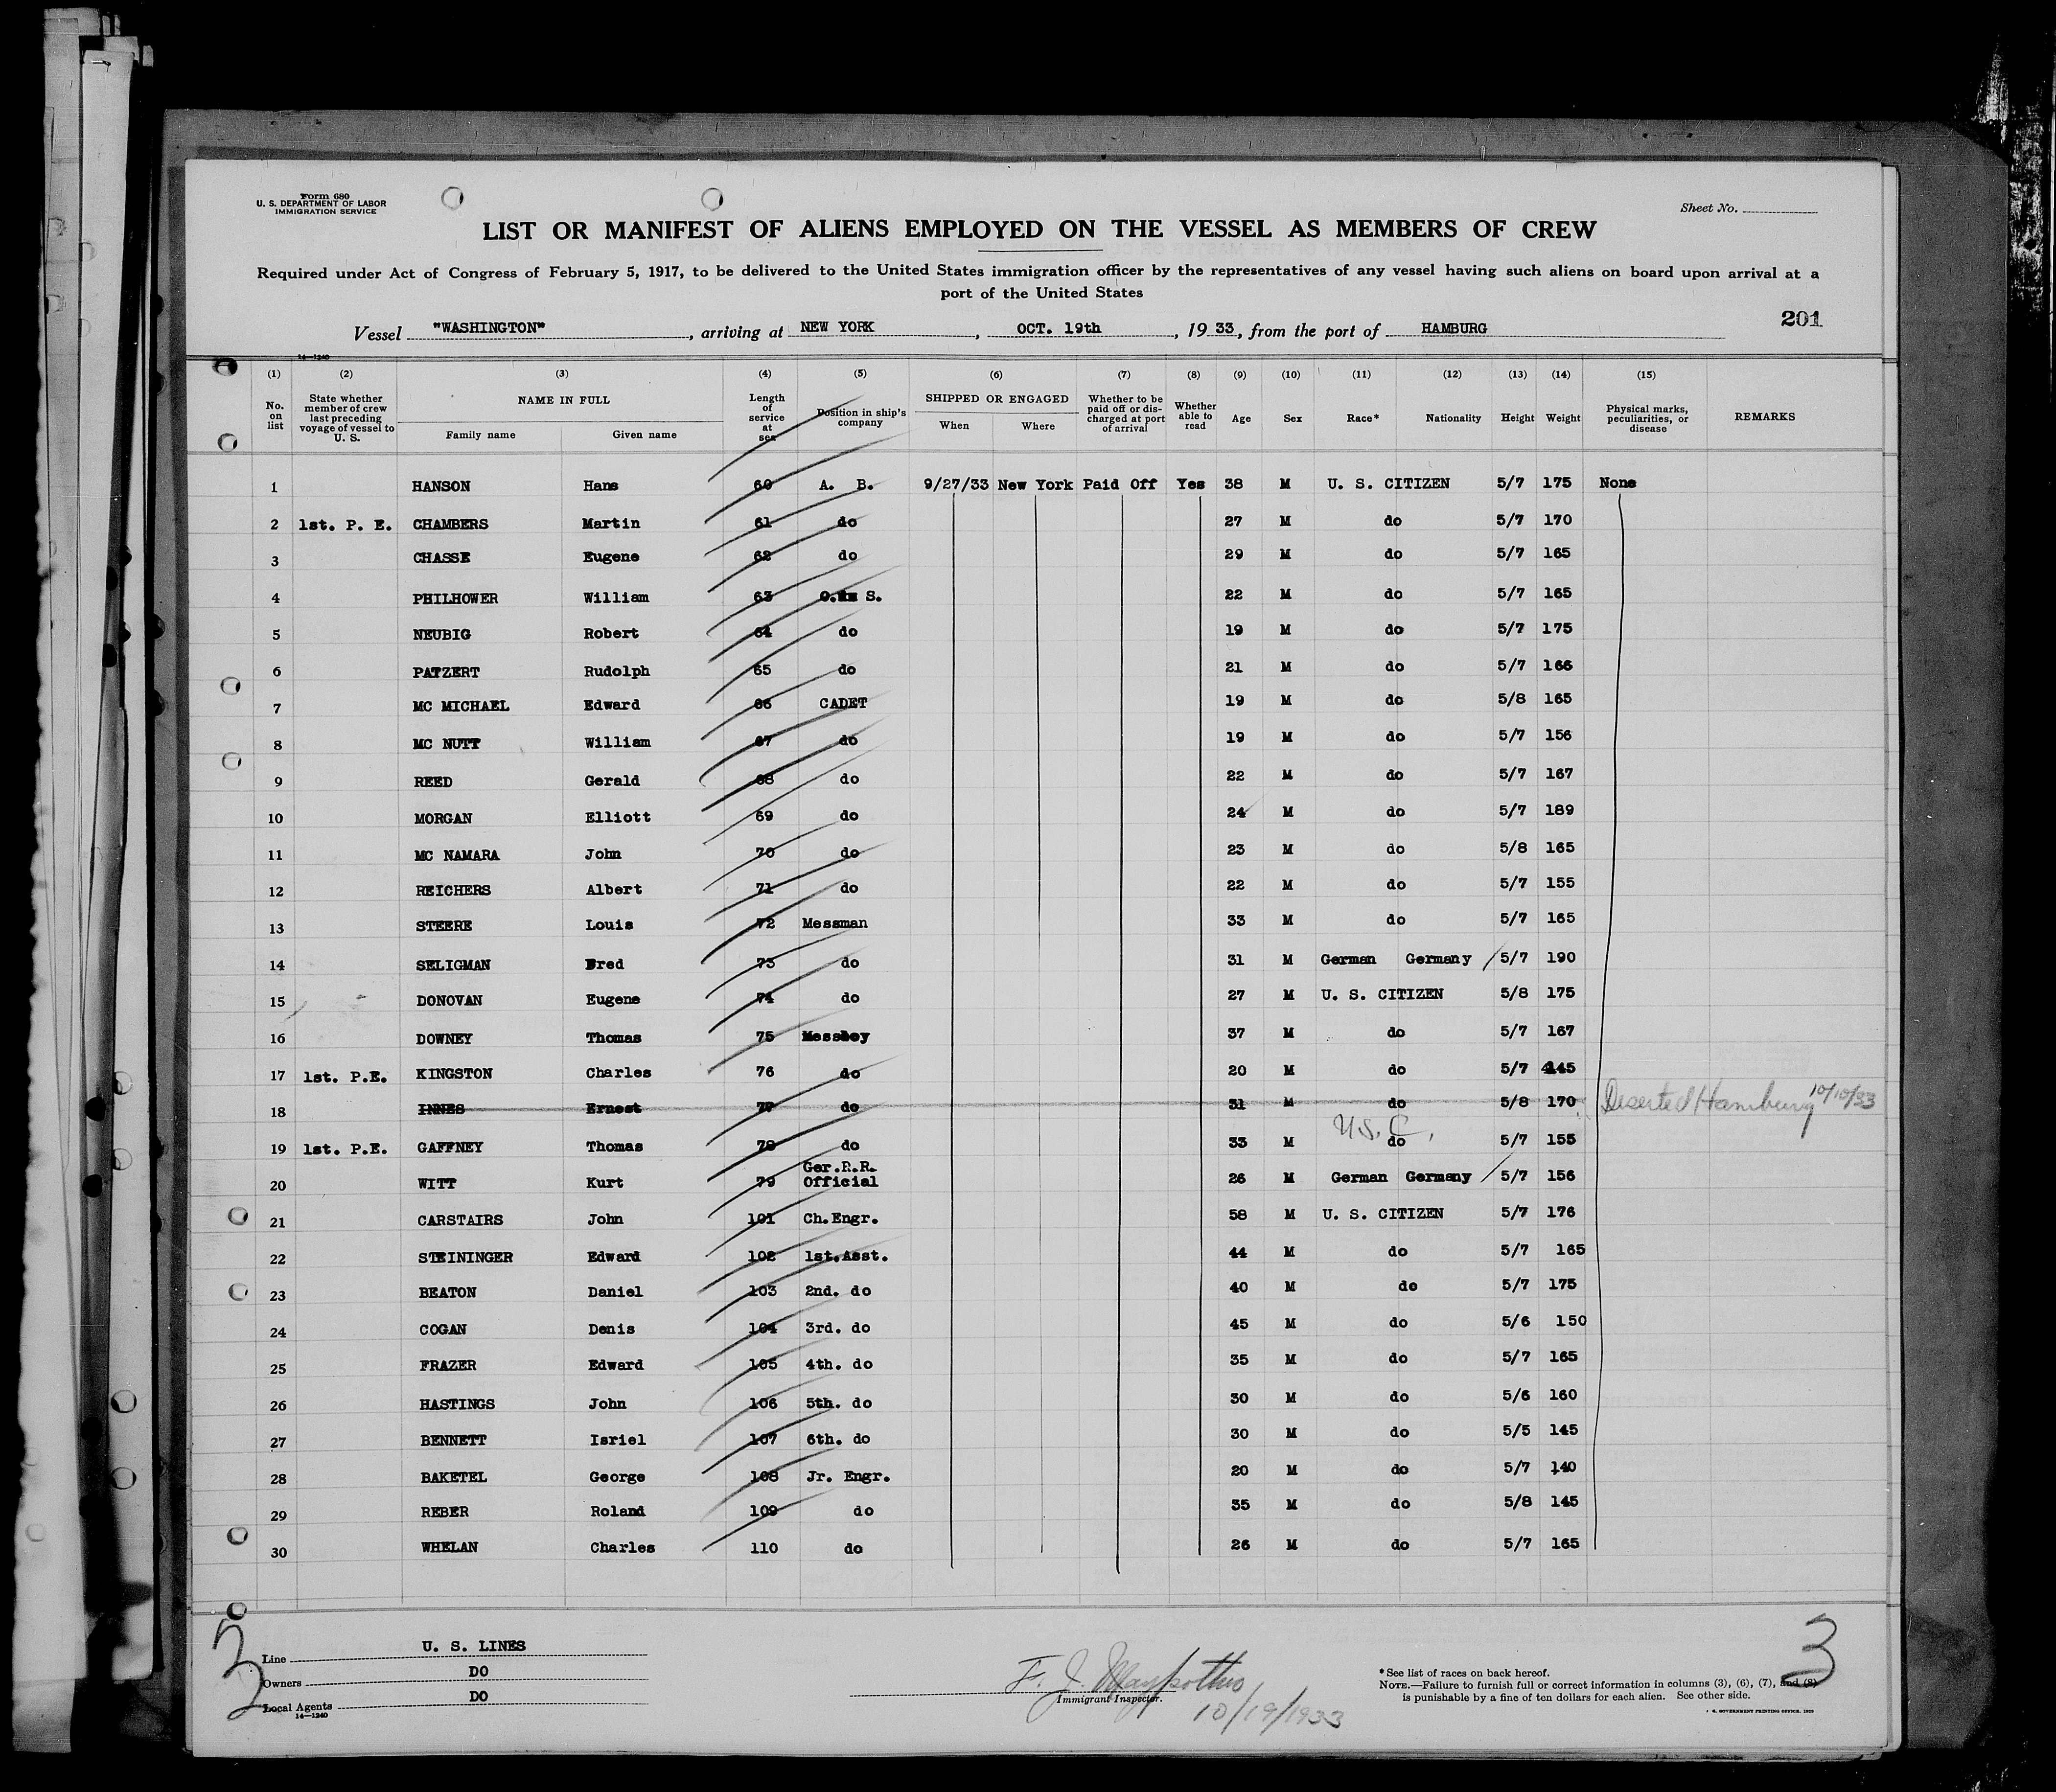 Form 680
U. S. DEPARTMENT OF LABOR
IMMIGRATION SERVICE
Sheet No.
LIST OR MANIFEST OF ALIENS EMPLOYED ON THE VESSEL AS MEMBERS OF CREW
Required under Act of Congress of February 5, 1917, to be delivered to the United States immigration officer by the representatives of any vessel having such aliens on board upon arrival at a
port of the United States
Vessel "WASHINGTON", arriving at NEW YORK, OCT. 19th, 1933, from the port of HAMBURG
201
14—1240
(1) (2) (3) (4) (5) (6) (7) (8) (9) (10) (11) (12) (13) (14) (15)
No. on list State whether member of crew last preceding voyage of vessel to U. S. NAME IN FULL Family name Given name Length of service at sea Position in ship's company SHIPPED OR ENGAGED When Where Whether to be paid off or discharged at port of arrival Whether able to read Age Sex Race* Nationality Height Weight Physical marks, peculiarities, or disease REMARKS
1 HANSON Hans 60 A. B. 9/27/33 New York Paid Off Yes 38 M U. S. CITIZEN 5/7 175 None
2 1st. P. E. CHAMBERS Martin 61 do 27 M do 5/7 170
3 CHASSE Eugene 62 do 29 M do 5/7 165
4 PHILHOWER William 63 O. S. 22 M do 5/7 165
5 NEUBIG Robert 64 do 19 M do 5/7 175
6 PATZERT Rudolph 65 do 21 M do 5/7 166
7 MC MICHAEL Edward 66 CADET 19 M do 5/8 165
8 MC NUTT William 67 do 19 M do 5/7 156
9 REED Gerald 68 do 22 M do 5/7 167
10 MORGAN Elliott 69 do 24 M do 5/7 189
11 MC NAMARA John 70 do 23 M do 5/8 165
12 REICHERS Albert 71 do 22 M do 5/7 155
13 STEERE Louis 72 Messman 33 M do 5/7 165
14 SELIGMAN Fred 73 do 31 M German Germany 5/7 190
15 DONOVAN Eugene 74 do 27 M U. S. CITIZEN 5/8 175
16 DOWNEY Thomas 75 Messboy 37 M do 5/7 167
17 1st. P.E. KINGSTON Charles 76 do 20 M do 5/7 145
18 INNES Ernest 77 do 31 M do 5/8 170 Deserted Hamburg 10/10/33
U.S.C.
19 1st. P.E. GAFFNEY Thomas 78 do 33 M do 5/7 155
20 WITT Kurt 79 Ger.R.R. Official 26 M German Germany 5/7 156
21 CARSTAIRS John 101 Ch.Engr. 58 M U. S. CITIZEN 5/7 176
22 STEININGER Edward 102 1st.Asst. 44 M do 5/7 165
23 BEATON Daniel 103 2nd. do 40 M do 5/7 175
24 COGAN Denis 104 3rd. do 45 M do 5/6 150
25 FRAZER Edward 105 4th. do 35 M do 5/7 165
26 HASTINGS John 106 5th. do 30 M do 5/6 160
27 BENNETT Isriel 107 6th. do 30 M do 5/5 145
28 BAKETEL George 108 Jr. Engr. 20 M do 5/7 140
29 REBER Roland 109 do 35 M do 5/8 145
30 WHELAN Charles 110 do 26 M do 5/7 165
3
Line U. S. LINES
Owners DO
Local Agents DO
14—1240
F. J.
Immigrant Inspector.
10/19/1933
* See list of races on back hereof.
NOTE.—Failure to furnish full or correct information in columns (3), (6), (7), and (8)
is punishable by a fine of ten dollars for each alien. See other side.
U. S. GOVERNMENT PRINTING OFFICE. 1929
3